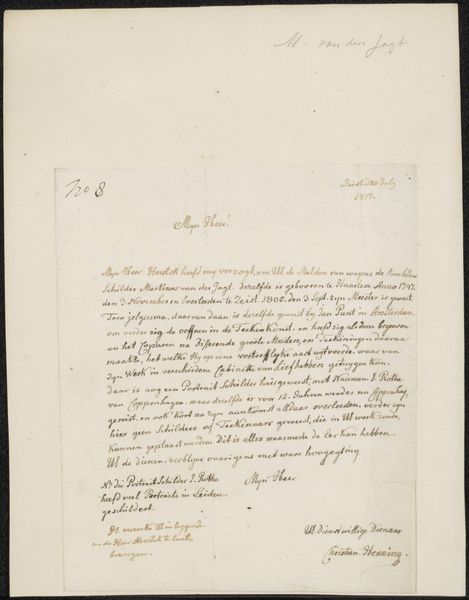 M. van der Jagt
No 8
Zeist d 20 July
1817.
Myn Heer!
Myn Heer Horstok heeft my verzogt, om UE te Melden van wegens de
Schilder Martinus van der Jagt. derzelfs is gebooren te Haarlem Anno 1747.
den 3 November en Overleeden te Zeist 1805. den 3 Sept. zyn Meester is geweest
Taco Jelgersma, daar van daan is derzelfs geweest by Jan Punt in Amsterdam,
om verder zig te oeffnen in de Teeken Konst. en heeft zig alsdoen begeven
en het Copieeren na differende groote Meesters, om Teekeningen daarna
maakte, het welke Hy op eene voortreffelyke aart uytvoerde, waar van
zyn Werk in verscheiden Cabinetten van Liefhebbers getuygen kan.
daar is nog een Portrait Schilder hier geweest, met Naamen J. Rothe
van Coppenhagen. maar derzelfs is voor 12. Jahren weeder na Coppenhag.
gereist, en ook kort na zyn aankomst aldaar overleeden. verder zyn
hier geen Schilders of Teekenaars geweest, die in UE werk zoude,
kunnen geplaatst worden. Dit is alles waarmede de Eer kan hebben
UE te dienen. verblyve overigens met ware hoogagting
Myn Heer
NB die Portrait Schilder J. Rothe
heeft veel Portraite in Leiden
geschildert
UE Dienstwillige Dienaar
Christian Henning.
PS. versoeke UE in leggende
an de Heer Horstok te laaten
besorgen.